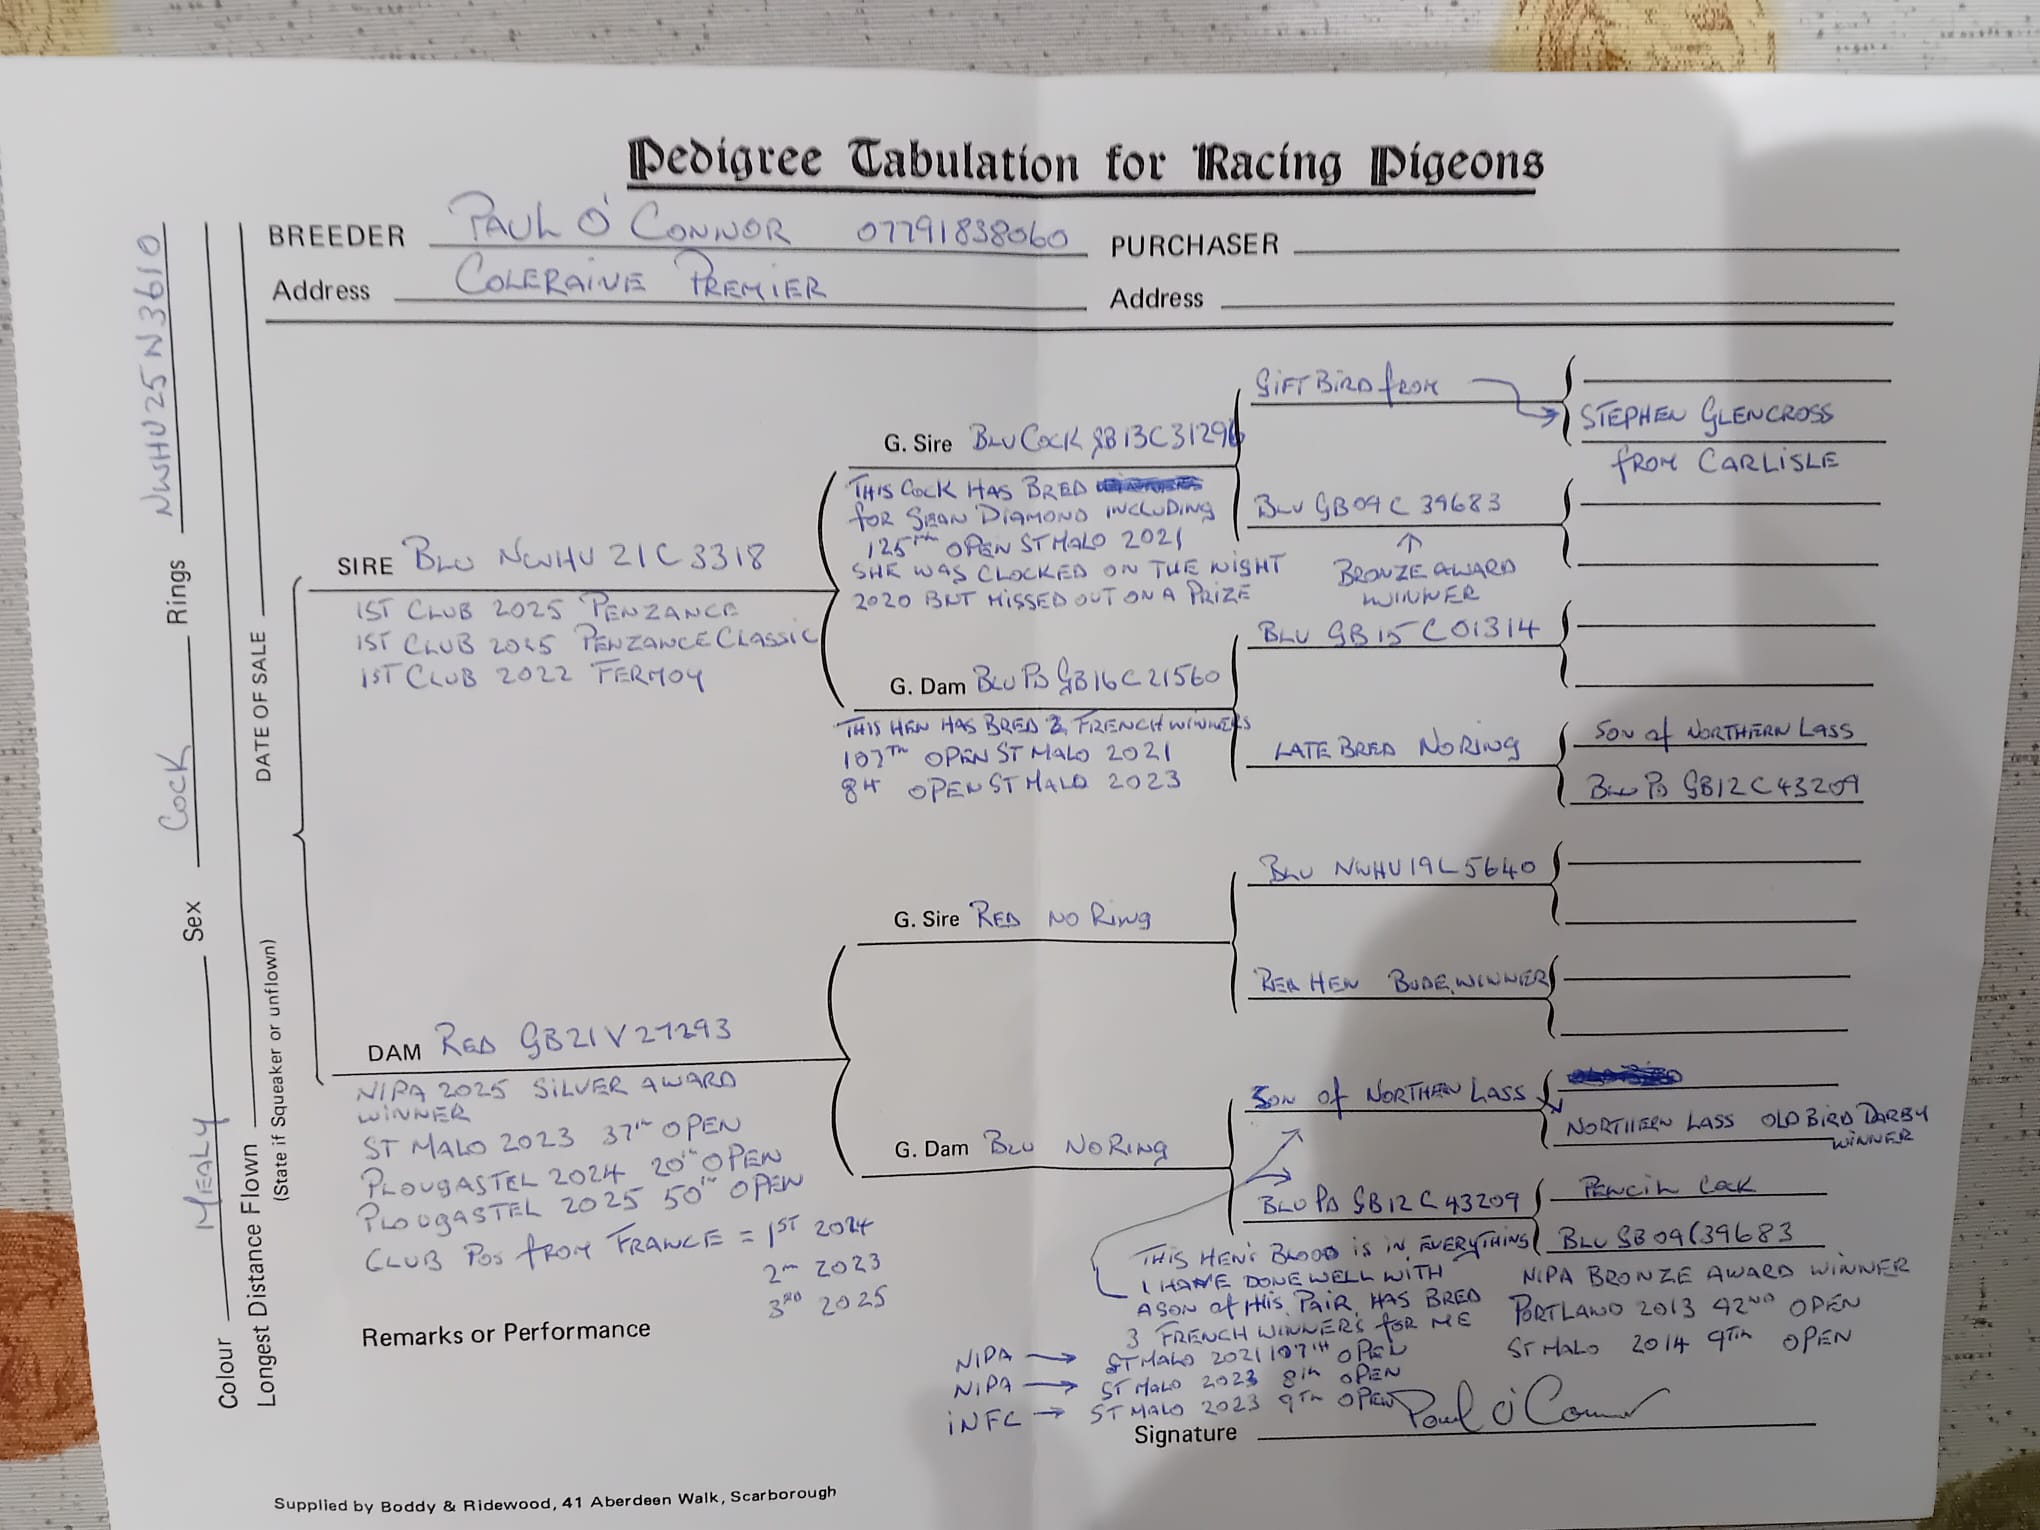 Pedigree Tabulation for Racing Pigeons
BREEDER PAUL O'CONNOR 07791838060
Address COLERAINE PREMIER
PURCHASER
Address
Colour MEALY Sex COCK Rings NWHU25N3610
Longest Distance Flown
(State if Squeaker or unflown)
DATE OF SALE
SIRE BLU NWHU 21C3318
1ST CLUB 2025 PENZANCE
1ST CLUB 2025 PENZANCE CLASSIC
1ST CLUB 2022 FERMOY
G. Sire BLU COCK GB13C31296
THIS COCK HAS BRED
for SEAN DIAMOND INCLUDING
125TH OPEN ST MALO 2021
SHE WAS CLOCKED ON THE NIGHT
2020 BUT MISSED OUT ON A PRIZE
GIFT BIRD from
STEPHEN GLENCROSS
from CARLISLE
BLU GB09C39683
BRONZE AWARD
WINNER
G. Dam BLU PD GB16C21560
THIS HEN HAS BRED 2 FRENCH WINNERS
107TH OPEN ST MALO 2021
8TH OPEN ST MALO 2023
BLU GB15C01314
LATE BRED NO RING
SON of NORTHERN LASS
BLU PD GB12C43209
DAM RED GB21V27293
NIPA 2025 SILVER AWARD
WINNER
ST MALO 2023 37TH OPEN
PLOUGASTEL 2024 20TH OPEN
PLOUGASTEL 2025 50TH OPEN
CLUB POS from FRANCE = 1ST 2024
2ND 2023
3RD 2025
G. Sire RED NO RING
BLU NWHU19L5640
RED HEN BUDE WINNER
G. Dam BLU NO RING
SON of NORTHEN LASS
NORTHERN LASS OLD BIRD DARBY
WINNER
BLU PD GB12C43209
PENCIL COCK
BLU GB09C39683
NIPA BRONZE AWARD WINNER
PORTLAND 2013 42ND OPEN
ST MALO 2014 9TH OPEN
THIS HEN'S BLOOD IS IN EVERYTHING
I HAVE DONE WELL WITH
A SON of this PAIR HAS BRED
3 FRENCH WINNERS for ME
NIPA → ST MALO 2021 107TH OPEN
NIPA → ST MALO 2023 8th OPEN
INFC → ST MALO 2023 9TH OPEN
Remarks or Performance
Signature Paul O'Connor
Supplied by Boddy & Ridewood, 41 Aberdeen Walk, Scarborough